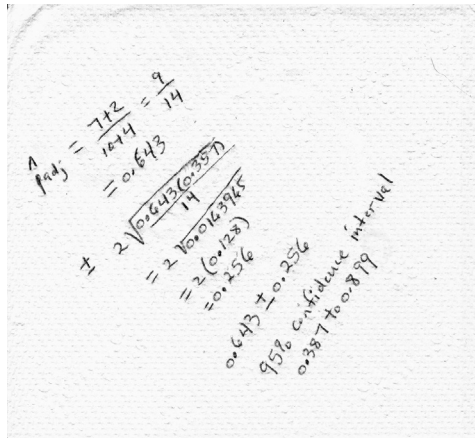 p̂adj = 7+2/10+4 = 9/14
= 0.643
± 2√0.643(0.357)/14
= 2√0.0163965
= 2(0.128)
= 0.256
0.643 ± 0.256
95% confidence interval
0.387 to 0.899